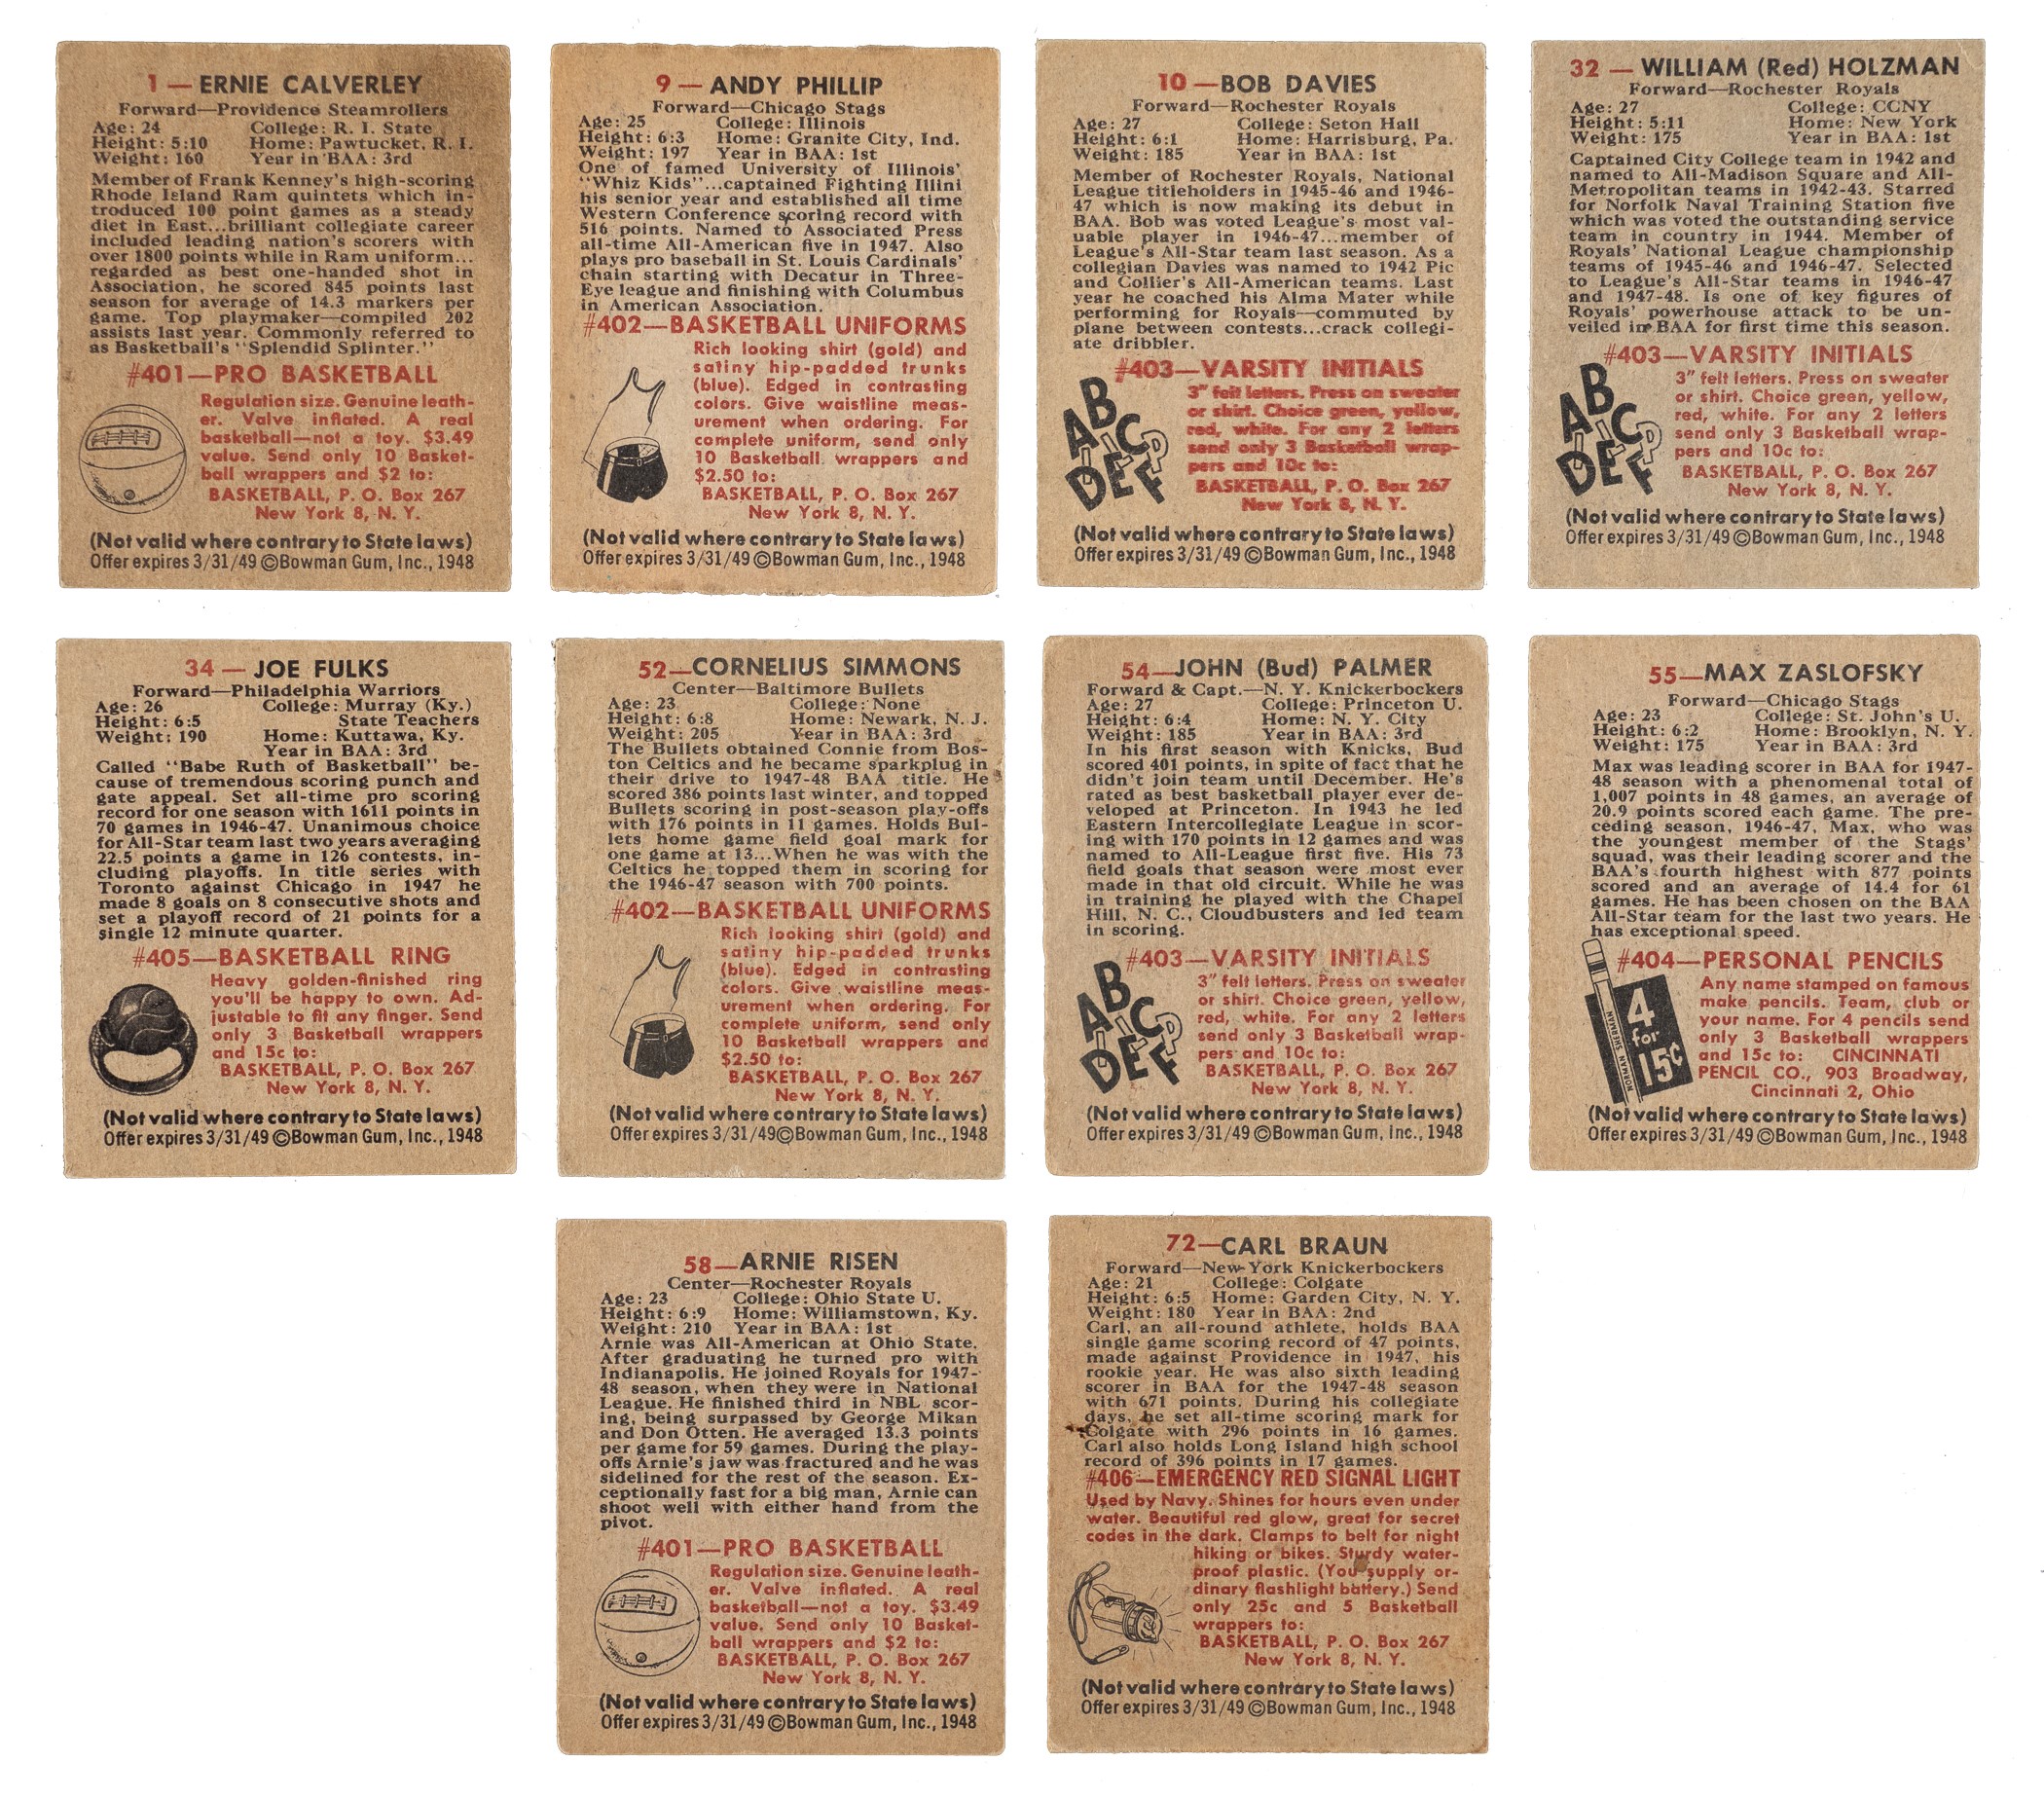 1 — ERNIE CALVERLEY
Forward—Providence Steamrollers
Age: 24 College: R. I. State
Height: 5:10 Home: Pawtucket, R. I.
Weight: 160 Year in BAA: 3rd
Member of Frank Kenney's high-scoring
Rhode Island Ram quintets which in-
troduced 100 point games as a steady
diet in East...brilliant collegiate career
included leading nation's scorers with
over 1800 points while in Ram uniform...
regarded as best one-handed shot in
Association, he scored 845 points last
season for average of 14.3 markers per
game. Top playmaker—compiled 202
assists last year. Commonly referred to
as Basketball's "Splendid Splinter."
#401—PRO BASKETBALL
Regulation size. Genuine leath-
er. Valve inflated. A real
basketball—not a toy. $3.49
value. Send only 10 Basket-
ball wrappers and $2 to:
BASKETBALL, P. O. Box 267
New York 8, N. Y.
(Not valid where contrary to State laws)
Offer expires 3/31/49 ©Bowman Gum, Inc., 1948
9 — ANDY PHILLIP
Forward—Chicago Stags
Age: 25 College: Illinois
Height: 6:3 Home: Granite City, Ind.
Weight: 197 Year in BAA: 1st
One of famed University of Illinois'
"Whiz Kids"...captained Fighting Illini
his senior year and established all time
Western Conference scoring record with
516 points. Named to Associated Press
all-time All-American five in 1947. Also
plays pro baseball in St. Louis Cardinals'
chain starting with Decatur in Three-
Eye league and finishing with Columbus
in American Association.
#402—BASKETBALL UNIFORMS
Rich looking shirt (gold) and
satiny hip-padded trunks
(blue). Edged in contrasting
colors. Give waistline meas-
urement when ordering. For
complete uniform, send only
10 Basketball wrappers and
$2.50 to:
BASKETBALL, P. O. Box 267
New York 8, N. Y.
(Not valid where contrary to State laws)
Offer expires 3/31/49 ©Bowman Gum, Inc., 1948
10 —BOB DAVIES
Forward—Rochester Royals
Age: 27 College: Seton Hall
Height: 6:1 Home: Harrisburg, Pa.
Weight: 185 Year in BAA: 1st
Member of Rochester Royals, National
League titleholders in 1945-46 and 1946-
47 which is now making its debut in
BAA. Bob was voted League's most val-
uable player in 1946-47...member of
League's All-Star team last season. As a
collegian Davies was named to 1942 Pic
and Collier's All-American teams. Last
year he coached his Alma Mater while
performing for Royals—commuted by
plane between contests...crack collegi-
ate dribbler.
#403—VARSITY INITIALS
ABCDEFP
3" felt letters. Press on sweater
or shirt. Choice green, yellow,
red, white. For any 2 letters
send only 3 Basketball wrap-
pers and 10c to:
BASKETBALL, P. O. Box 267
New York 8, N. Y.
(Not valid where contrary to State laws)
Offer expires 3/31/49 ©Bowman Gum, Inc., 1948
32 — WILLIAM (Red) HOLZMAN
Forward—Rochester Royals
Age: 27 College: CCNY
Height: 5:11 Home: New York
Weight: 175 Year in BAA: 1st
Captained City College team in 1942 and
named to All-Madison Square and All-
Metropolitan teams in 1942-43. Starred
for Norfolk Naval Training Station five
which was voted the outstanding service
team in country in 1944. Member of
Royals' National League championship
teams of 1945-46 and 1946-47. Selected
to League's All-Star teams in 1946-47
and 1947-48. Is one of key figures of
Royals' powerhouse attack to be un-
veiled in BAA for first time this season.
#403—VARSITY INITIALS
ABCDEFP
3" felt letters. Press on sweater
or shirt. Choice green, yellow,
red, white. For any 2 letters
send only 3 Basketball wrap-
pers and 10c to:
BASKETBALL, P. O. Box 267
New York 8, N. Y.
(Not valid where contrary to State laws)
Offer expires 3/31/49 ©Bowman Gum, Inc., 1948
34 — JOE FULKS
Forward—Philadelphia Warriors
Age: 26 College: Murray (Ky.)
Height: 6:5 State Teachers
Weight: 190 Home: Kuttawa, Ky.
Year in BAA: 3rd
Called "Babe Ruth of Basketball" be-
cause of tremendous scoring punch and
gate appeal. Set all-time pro scoring
record for one season with 1611 points in
70 games in 1946-47. Unanimous choice
for All-Star team last two years averaging
22.5 points a game in 126 contests, in-
cluding playoffs. In title series with
Toronto against Chicago in 1947 he
made 8 goals on 8 consecutive shots and
set a playoff record of 21 points for a
single 12 minute quarter.
#405—BASKETBALL RING
Heavy golden-finished ring
you'll be happy to own. Ad-
justable to fit any finger. Send
only 3 Basketball wrappers
and 15c to:
BASKETBALL, P. O. Box 267
New York 8, N. Y.
(Not valid where contrary to State laws)
Offer expires 3/31/49 ©Bowman Gum, Inc., 1948
52—CORNELIUS SIMMONS
Center—Baltimore Bullets
Age: 23 College: None
Height: 6:8 Home: Newark, N. J.
Weight: 205 Year in BAA: 3rd
The Bullets obtained Connie from Bos-
ton Celtics and he became sparkplug in
their drive to 1947-48 BAA title. He
scored 386 points last winter, and topped
Bullets scoring in post-season play-offs
with 176 points in 11 games. Holds Bul-
lets home game field goal mark for
one game at 13...When he was with the
Celtics he topped them in scoring for
the 1946-47 season with 700 points.
#402—BASKETBALL UNIFORMS
Rich looking shirt (gold) and
satiny hip-padded trunks
(blue). Edged in contrasting
colors. Give waistline meas-
urement when ordering. For
complete uniform, send only
10 Basketball wrappers and
$2.50 to:
BASKETBALL, P. O. Box 267
New York 8, N. Y.
(Not valid where contrary to State laws)
Offer expires 3/31/49©Bowman Gum, Inc., 1948
54—JOHN (Bud) PALMER
Forward & Capt.—N. Y. Knickerbockers
Age: 27 College: Princeton U.
Height: 6:4 Home: N. Y. City
Weight: 185 Year in BAA: 3rd
In his first season with Knicks, Bud
scored 401 points, in spite of fact that he
didn't join team until December. He's
rated as best basketball player ever de-
veloped at Princeton. In 1943 he led
Eastern Intercollegiate League in scor-
ing with 170 points in 12 games and was
named to All-League first five. His 73
field goals that season were most ever
made in that old circuit. While he was
in training he played with the Chapel
Hill, N. C., Cloudbusters and led team
in scoring.
#403—VARSITY INITIALS
ABCDEFP
3" felt letters. Press on sweater
or shirt. Choice green, yellow,
red, white. For any 2 letters
send only 3 Basketball wrap-
pers and 10c to:
BASKETBALL, P. O. Box 267
New York 8, N. Y.
(Not valid where contrary to State laws)
Offer expires 3/31/49 ©Bowman Gum, Inc., 1948
55—MAX ZASLOFSKY
Forward—Chicago Stags
Age: 23 College: St. John's U.
Height: 6:2 Home: Brooklyn, N. Y.
Weight: 175 Year in BAA: 3rd
Max was leading scorer in BAA for 1947-
48 season with a phenomenal total of
1,007 points in 48 games, an average of
20.9 points scored each game. The pre-
ceding season, 1946-47, Max, who was
the youngest member of the Stags'
squad, was their leading scorer and the
BAA's fourth highest with 877 points
scored and an average of 14.4 for 61
games. He has been chosen on the BAA
All-Star team for the last two years. He
has exceptional speed.
#404—PERSONAL PENCILS
NORMAN SHERMAN
4 for 15¢
Any name stamped on famous
make pencils. Team, club or
your name. For 4 pencils send
only 3 Basketball wrappers
and 15c to: CINCINNATI
PENCIL CO., 903 Broadway,
Cincinnati 2, Ohio
(Not valid where contrary to State laws)
Offer expires 3/31/49 ©Bowman Gum, Inc., 1948
58—ARNIE RISEN
Center—Rochester Royals
Age: 23 College: Ohio State U.
Height: 6:9 Home: Williamstown, Ky.
Weight: 210 Year in BAA: 1st
Arnie was All-American at Ohio State.
After graduating he turned pro with
Indianapolis. He joined Royals for 1947-
48 season, when they were in National
League. He finished third in NBL scor-
ing, being surpassed by George Mikan
and Don Otten. He averaged 13.3 points
per game for 59 games. During the play-
offs Arnie's jaw was fractured and he was
sidelined for the rest of the season. Ex-
ceptionally fast for a big man, Arnie can
shoot well with either hand from the
pivot.
#401—PRO BASKETBALL
Regulation size. Genuine leath-
er. Valve inflated. A real
basketball—not a toy. $3.49
value. Send only 10 Basket-
ball wrappers and $2 to:
BASKETBALL, P. O. Box 267
New York 8, N. Y.
(Not valid where contrary to State laws)
Offer expires 3/31/49 ©Bowman Gum, Inc., 1948
72—CARL BRAUN
Forward—New York Knickerbockers
Age: 21 College: Colgate
Height: 6:5 Home: Garden City, N. Y.
Weight: 180 Year in BAA: 2nd
Carl, an all-round athlete, holds BAA
single game scoring record of 47 points,
made against Providence in 1947, his
rookie year. He was also sixth leading
scorer in BAA for the 1947-48 season
with 671 points. During his collegiate
days, he set all-time scoring mark for
Colgate with 296 points in 16 games.
Carl also holds Long Island high school
record of 396 points in 17 games.
#406—EMERGENCY RED SIGNAL LIGHT
Used by Navy. Shines for hours even under
water. Beautiful red glow, great for secret
codes in the dark. Clamps to belt for night
hiking or bikes. Sturdy water-
proof plastic. (You supply or-
dinary flashlight battery.) Send
only 25c and 5 Basketball
wrappers to:
BASKETBALL, P. O. Box 267
New York 8, N. Y.
(Not valid where contrary to State laws)
Offer expires 3/31/49 ©Bowman Gum, Inc., 1948